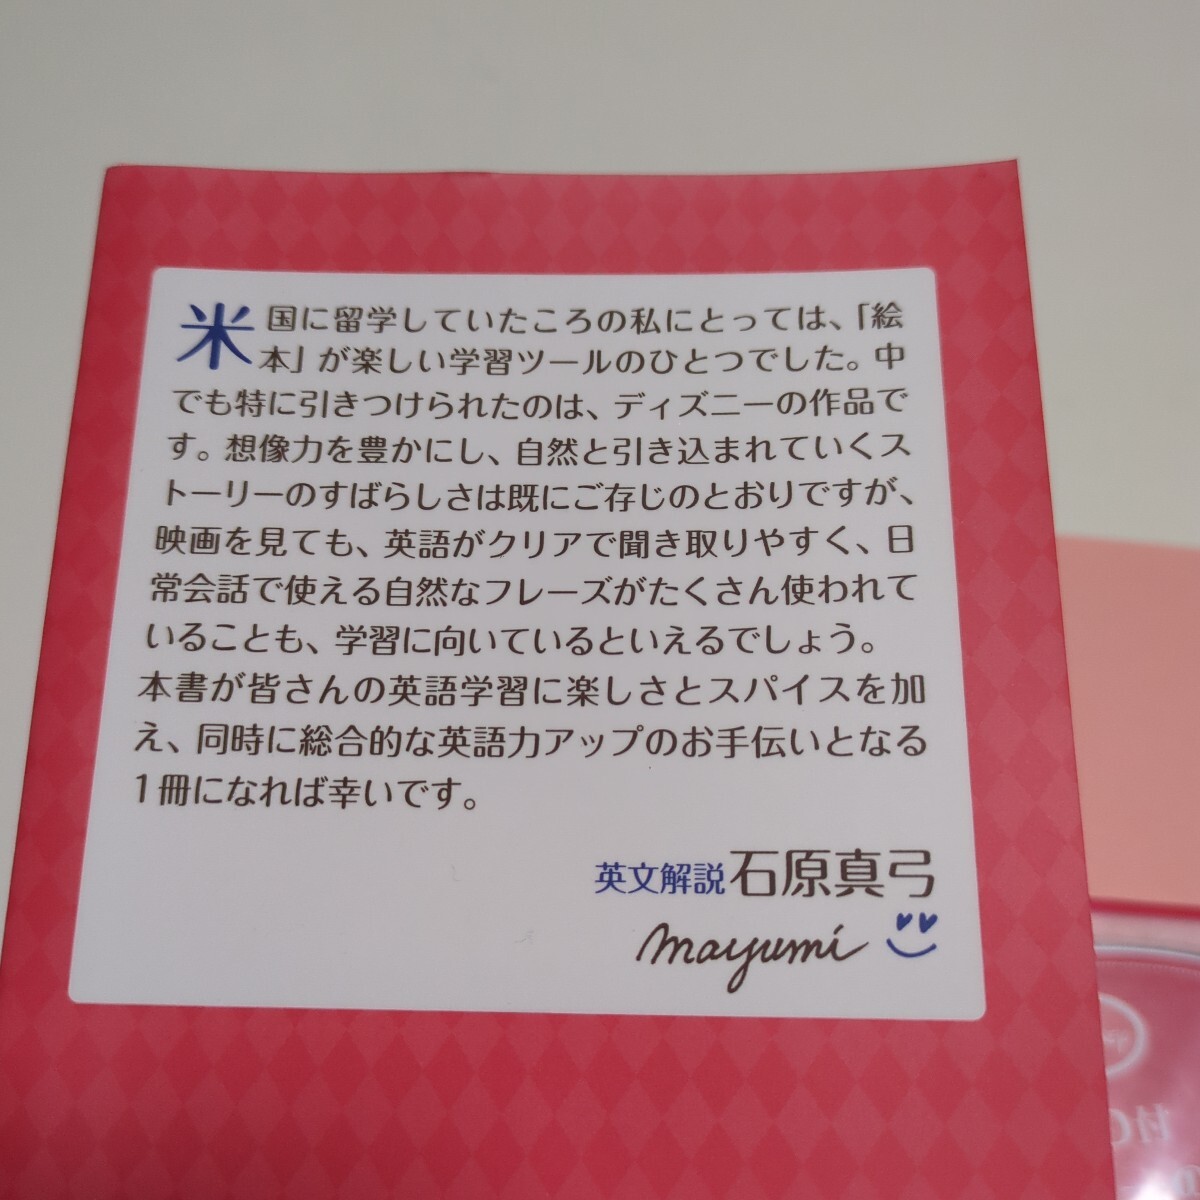 米国に留学していたころの私にとっては、「絵
本」が楽しい学習ツールのひとつでした。中
でも特に引きつけられたのは、ディズニーの作品で
す。想像力を豊かにし、自然と引き込まれていくス
トーリーのすばらしさは既にご存じのとおりですが、
映画を見ても、英語がクリアで聞き取りやすく、日
常会話で使える自然なフレーズがたくさん使われて
いることも、学習に向いているといえるでしょう。
本書が皆さんの英語学習に楽しさとスパイスを加
え、同時に総合的な英語力アップのお手伝いとなる
1冊になれば幸いです。
英文解説 石原真弓
mayumi